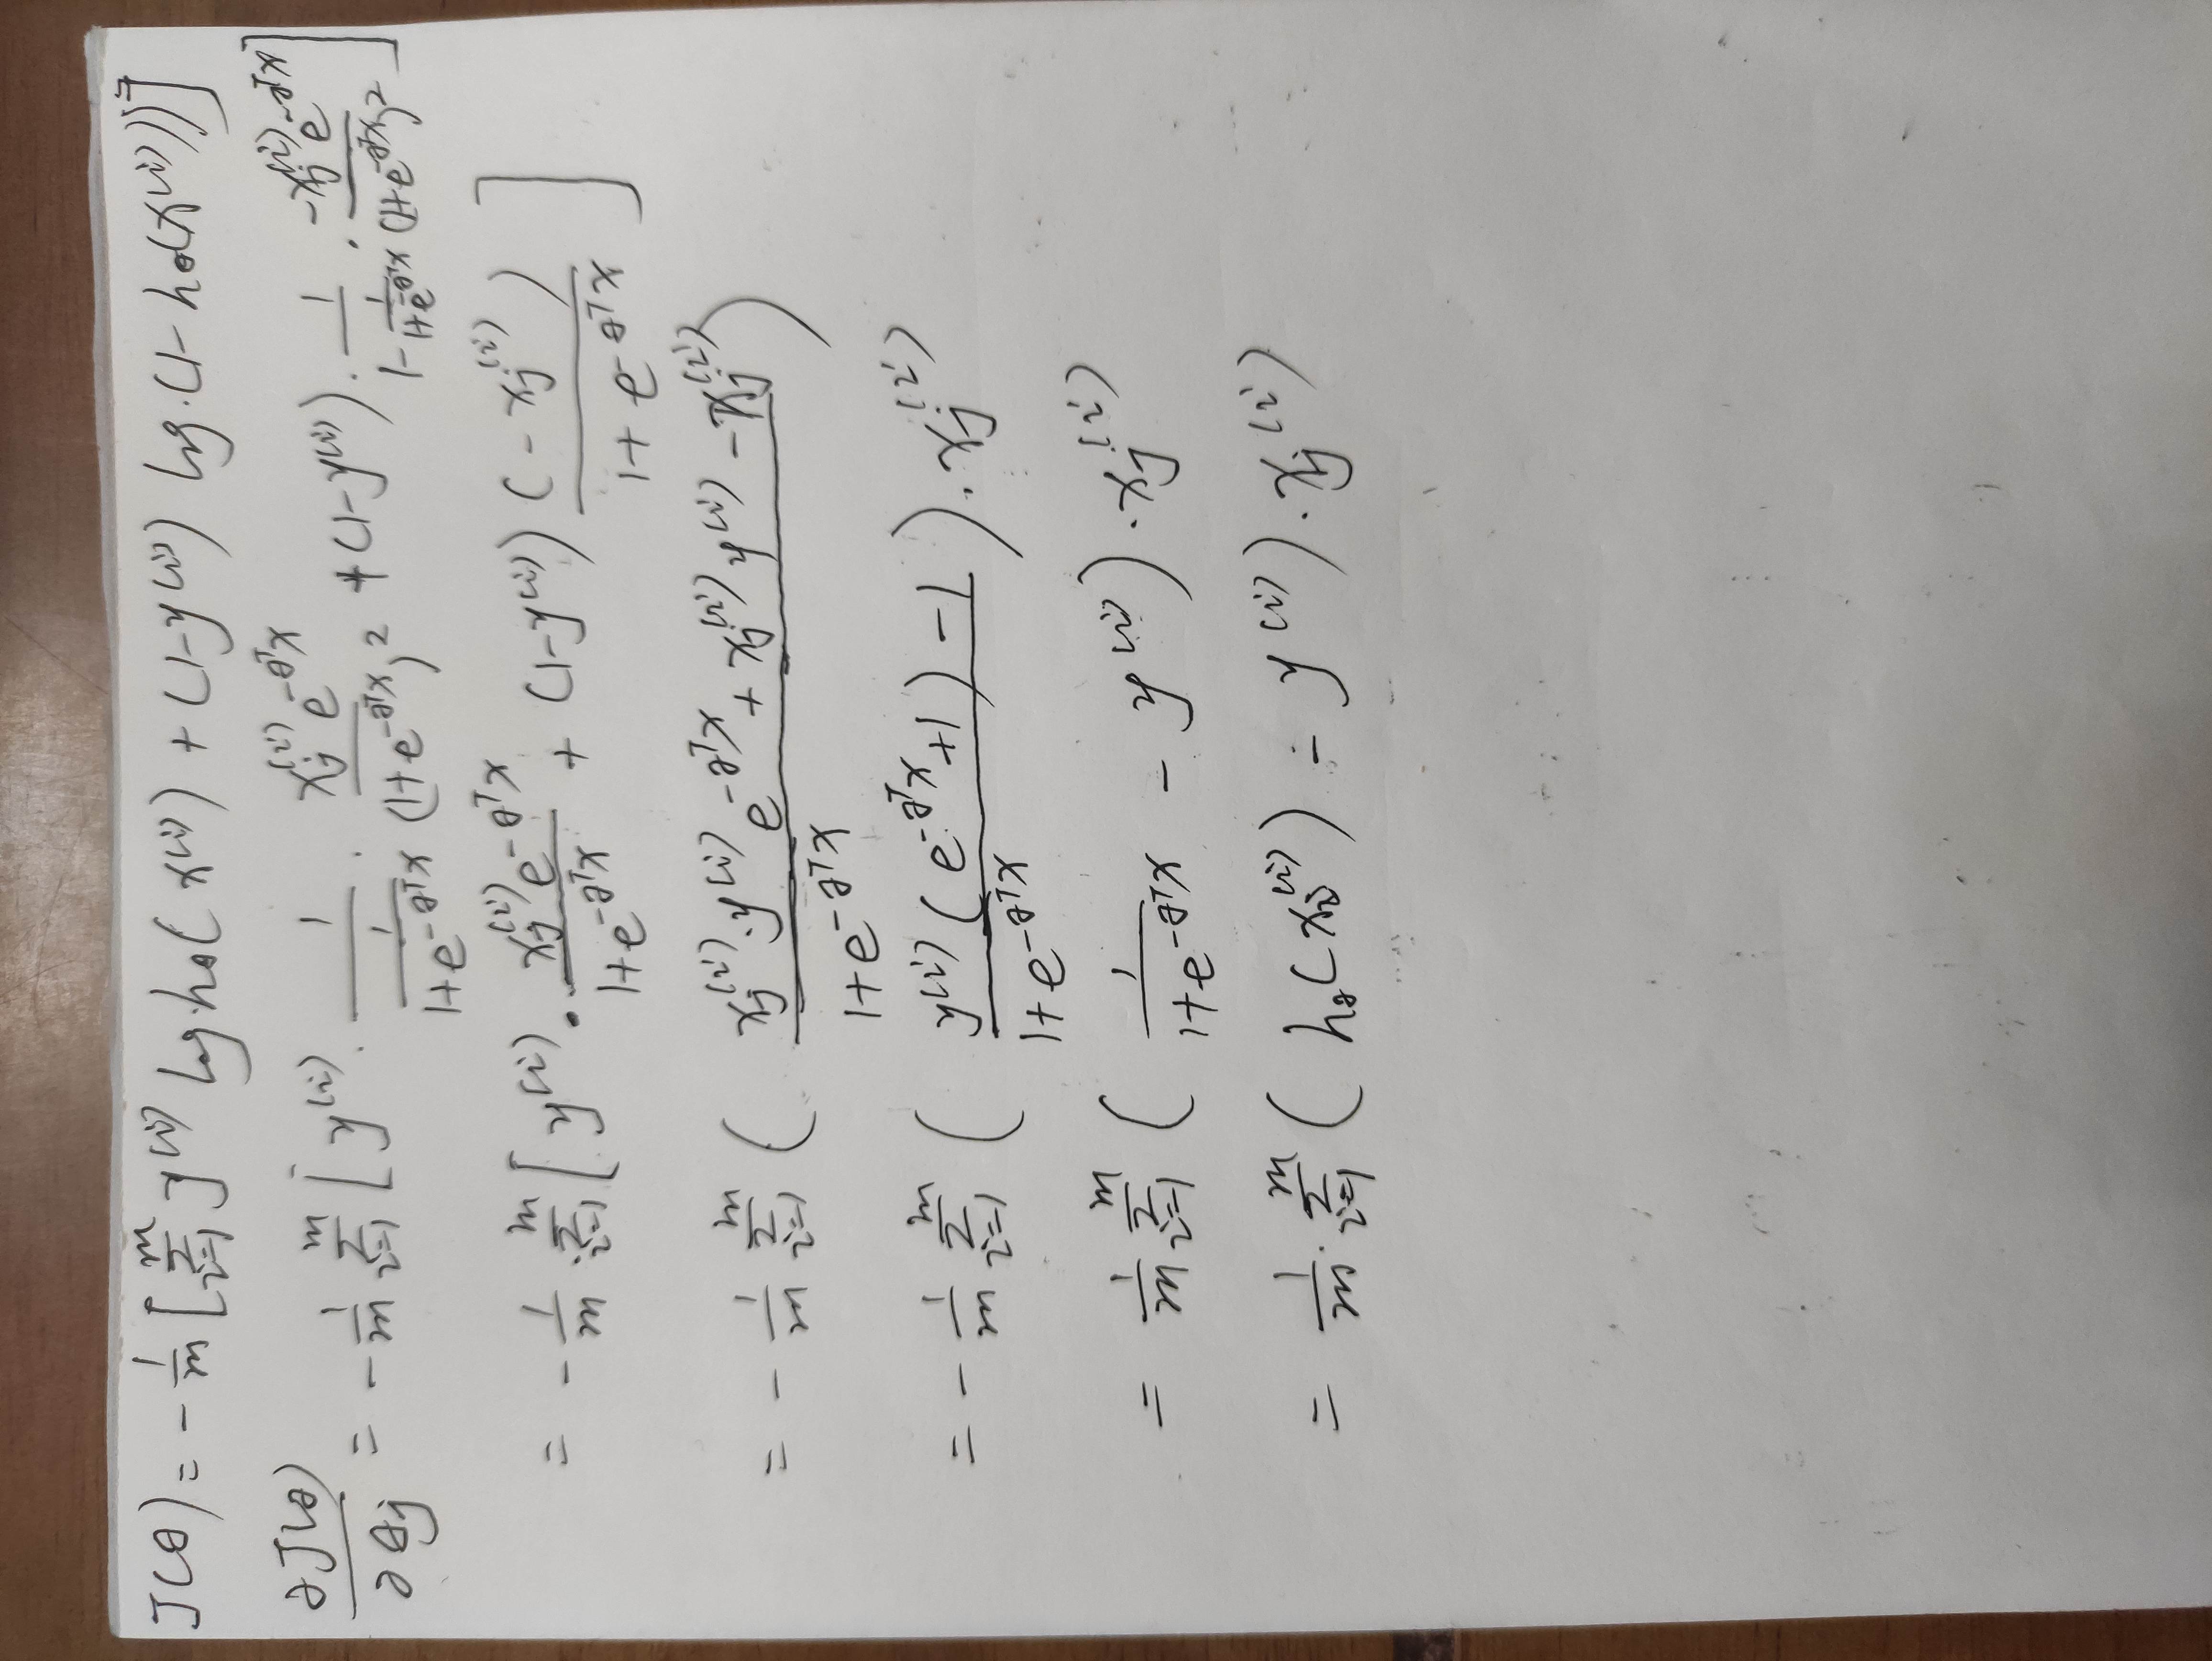 J(θ) = - 1/m [ Σ_{i=1}^{m} y^{(i)} log h_θ(x^{(i)}) + (1-y^{(i)}) log·(1-h_θ(x^{(i)})) ]
∂J(θ)/∂θ_j = - 1/m Σ_{i=1}^{m} [ y^{(i)} · 1/(1/(1+e^{-θ^T x})) · x_j^{(i)} e^{-θ^T x}/(1+e^{-θ^T x})^2 + (1-y^{(i)}) · 1/(1 - 1/(1+e^{-θ^T x})) · -x_j^{(i)} e^{-θ^T x}/(1+e^{-θ^T x})^2 ]
= - 1/m Σ_{i=1}^{m} [ y^{(i)} · x_j^{(i)} e^{-θ^T x}/(1+e^{-θ^T x}) + (1-y^{(i)}) (-x_j^{(i)})/(1+e^{-θ^T x}) ]
= - 1/m Σ_{i=1}^{m} ( (x_j^{(i)}·y^{(i)} e^{-θ^T x} + x_j^{(i)} y^{(i)} - x_j^{(i)})/(1+e^{-θ^T x}) )
= - 1/m Σ_{i=1}^{m} ( (y^{(i)}(e^{-θ^T x}+1)-1)/(1+e^{-θ^T x}) ) · x_j^{(i)}
= 1/m Σ_{i=1}^{m} ( 1/(1+e^{-θ^T x}) - y^{(i)} ) · x_j^{(i)}
= 1/m · Σ_{i=1}^{m} ( h_θ(x^{(i)}) - y^{(i)} ) · x_j^{(i)}